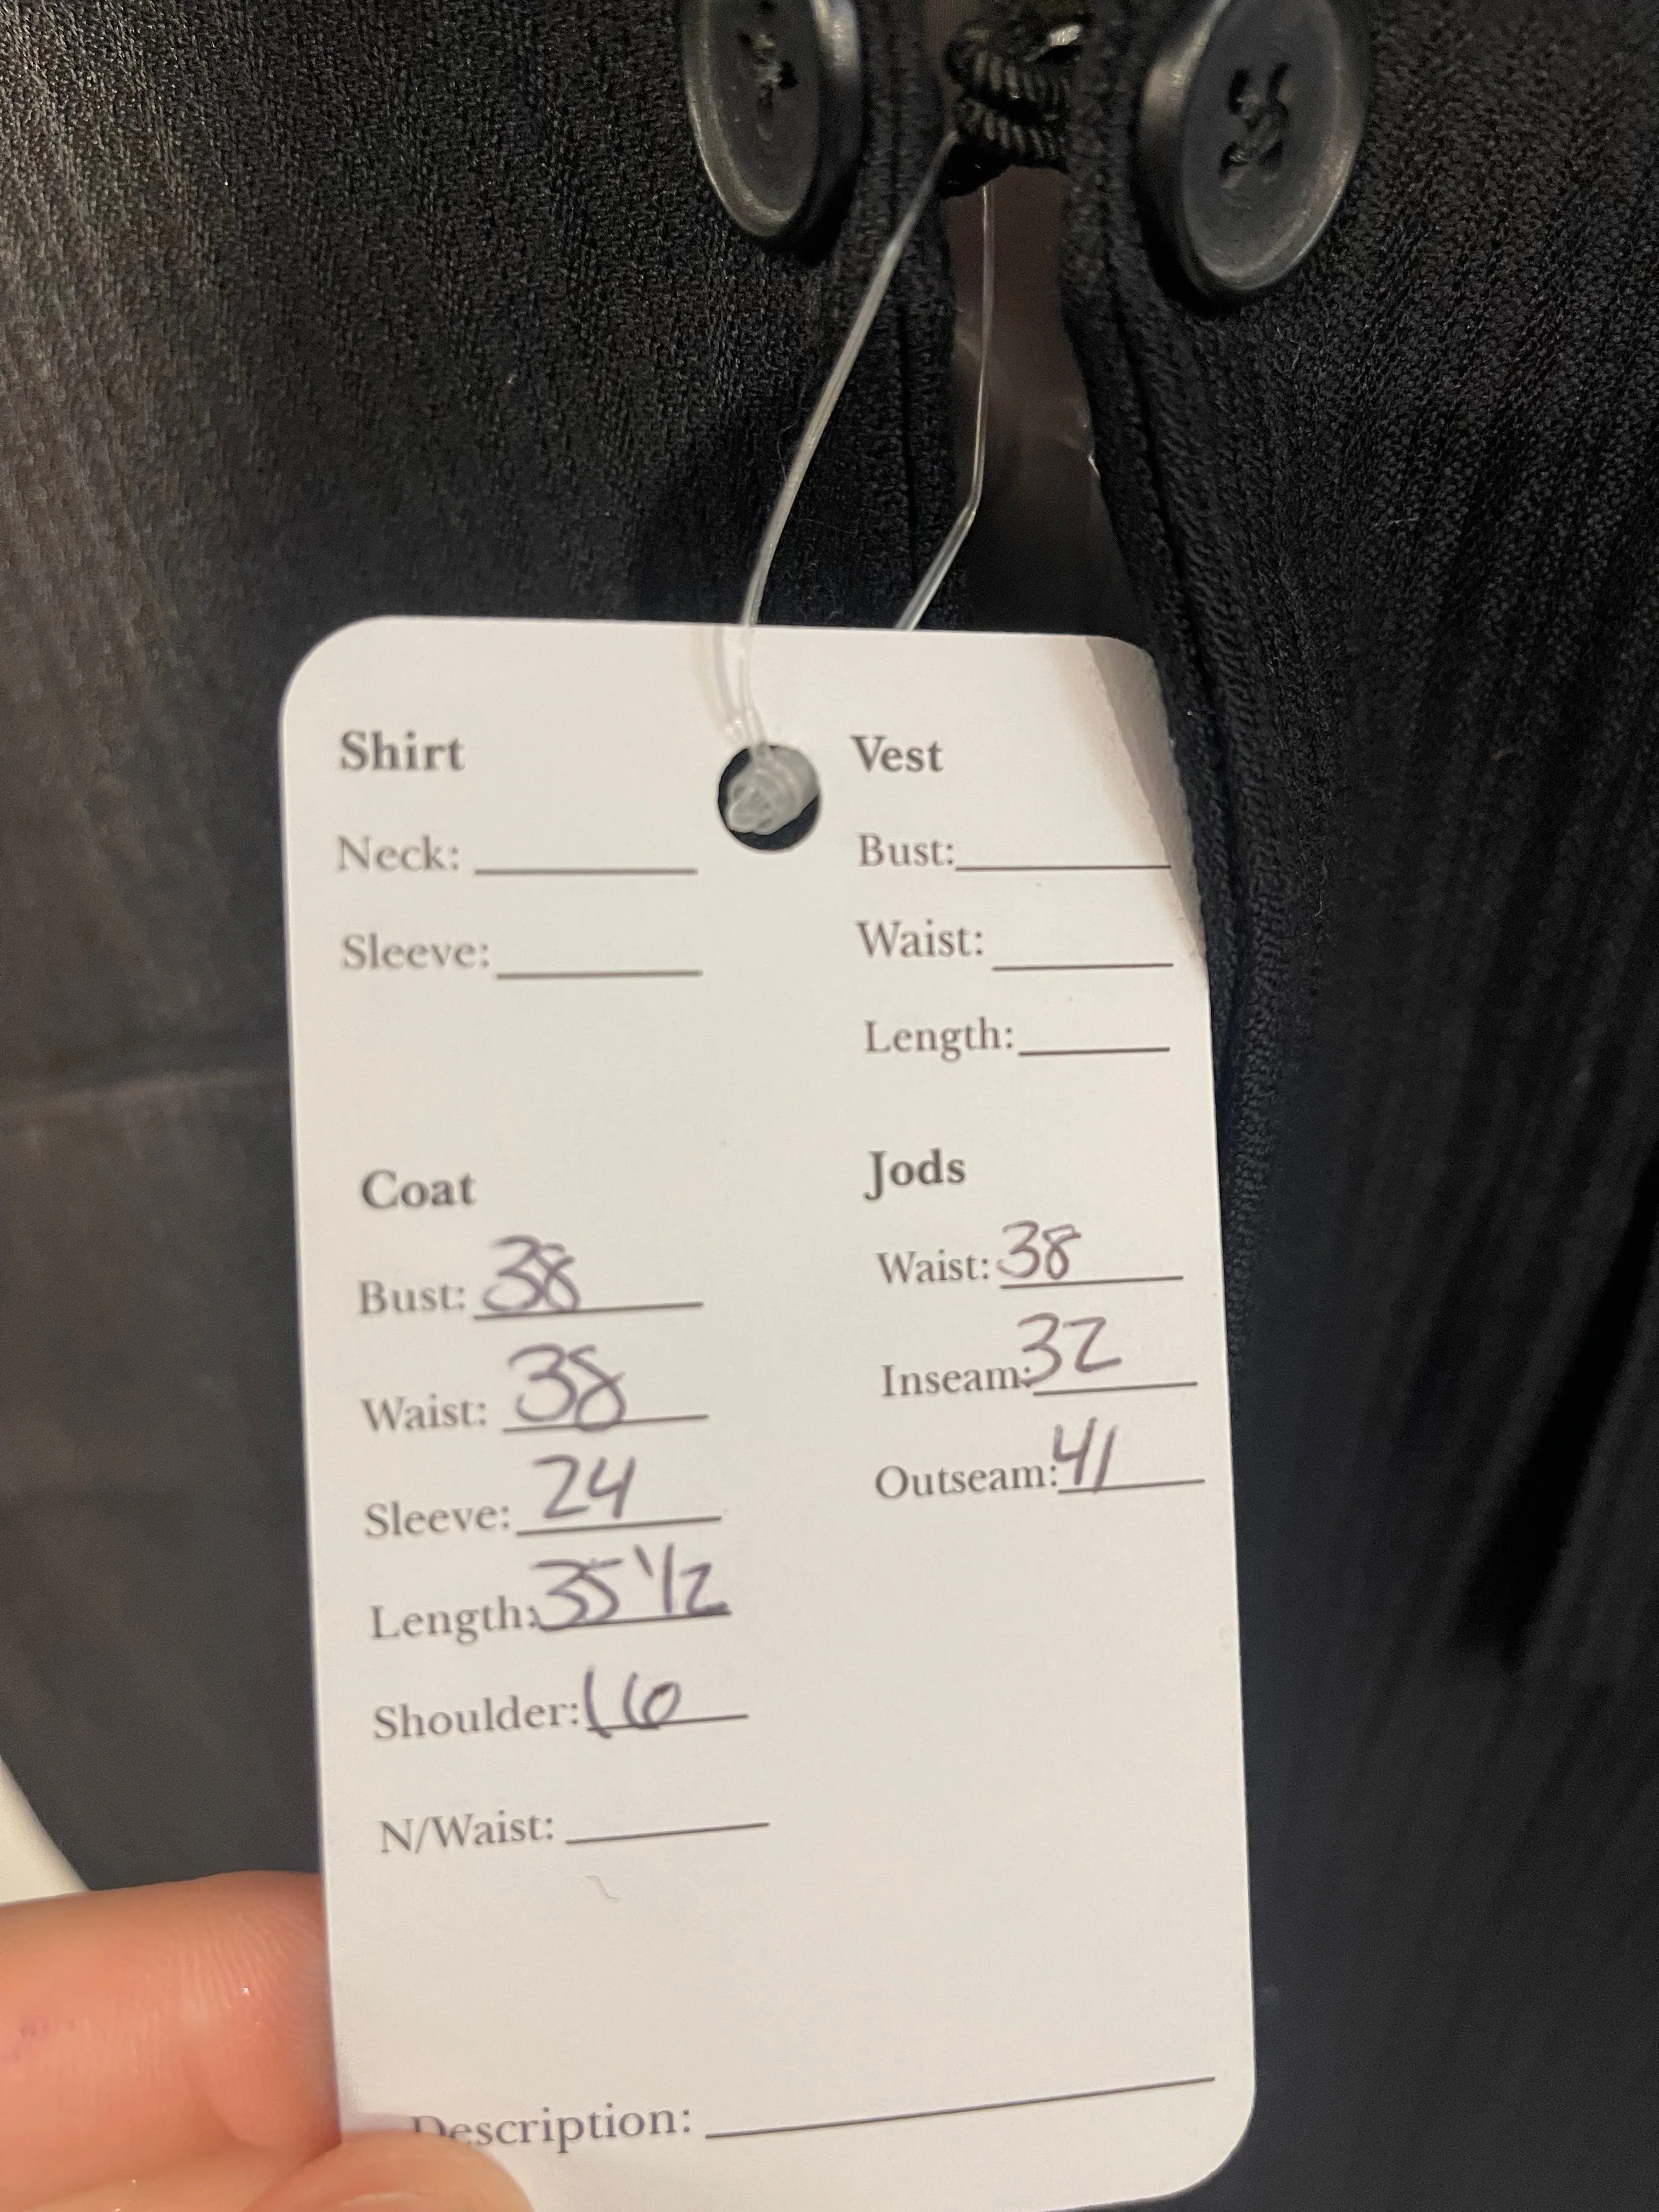 Shirt
Neck:
Sleeve:
Vest
Bust:
Waist:
Length:
Coat
Bust: 38
Waist: 38
Sleeve: 24
Length: 35 1/2
Shoulder: 16
N/Waist:
Jods
Waist: 38
Inseam: 32
Outseam: 41
Description: